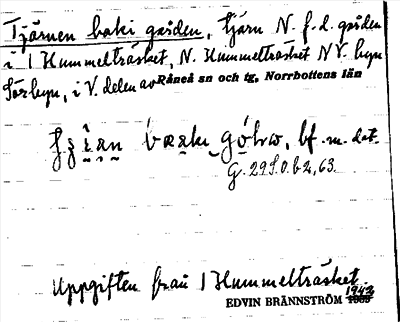 Tjärnen baki gården, tjärn N. f. d. gården
i 1 Hummelträsket, N. Hummelträsket NV. byn
Sörbyn, i V. delen av Råneå sn och tg, Norrbottens län
bf. m. dat.
G. 29 S. O. b 2, 63.
Uppgiften från 1 Hummelträsket
1942
EDVIN BRÄNNSTRÖM